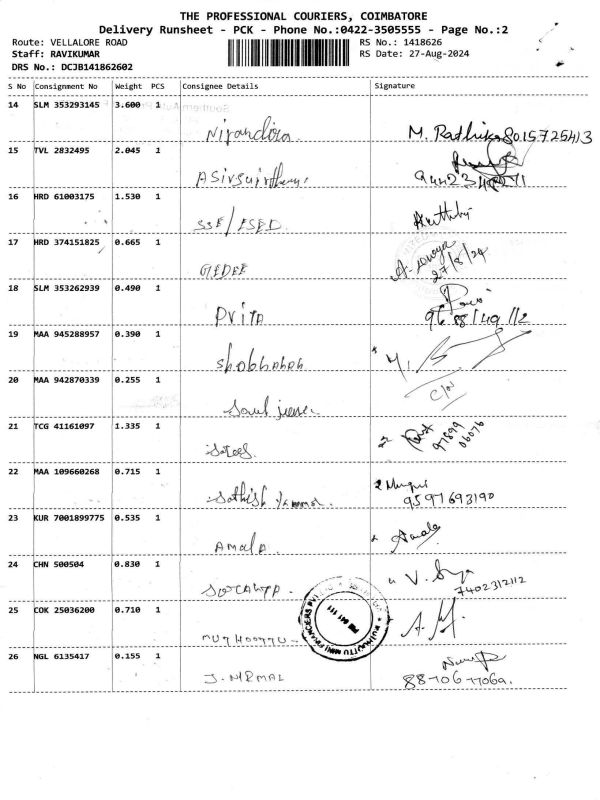 THE PROFESSIONAL COURIERS, COIMBATORE
Delivery Runsheet - PCK - Phone No.:0422-3505555 - Page No.:2
Route: VELLALORE ROAD RS No.: 1418626
Staff: RAVIKUMAR RS Date: 27-Aug-2024
DRS No.: DCJB141862602
S No Consignment No Weight PCS Consignee Details Signature
14 SLM 353293145 3.600 1
M. Rathika 8015725413
15 TVL 2832495 2.045 1
16 HRD 61003175 1.530 1
SSE/ESED
17 HRD 374151825 0.665 1
GEDEE 27/8/24
18 SLM 353262939 0.490 1
Priya
19 MAA 945288957 0.390 1
Shobhanah
20 MAA 942870339 0.255 1
C/N
21 TCG 41161097 1.335 1
97899
06076
22 MAA 109660268 0.715 1
Sathish 9597693190
23 KUR 7001899775 0.535 1
Amala Amala
24 CHN 500504 0.830 1
V. Surya
7402312112
25 COK 25036200 0.710 1
MUTHOOTTU
MUTHOOTTU MINI FINANCIERS PVT LTD
26 NGL 6135417 0.155 1
J. NIRMAL